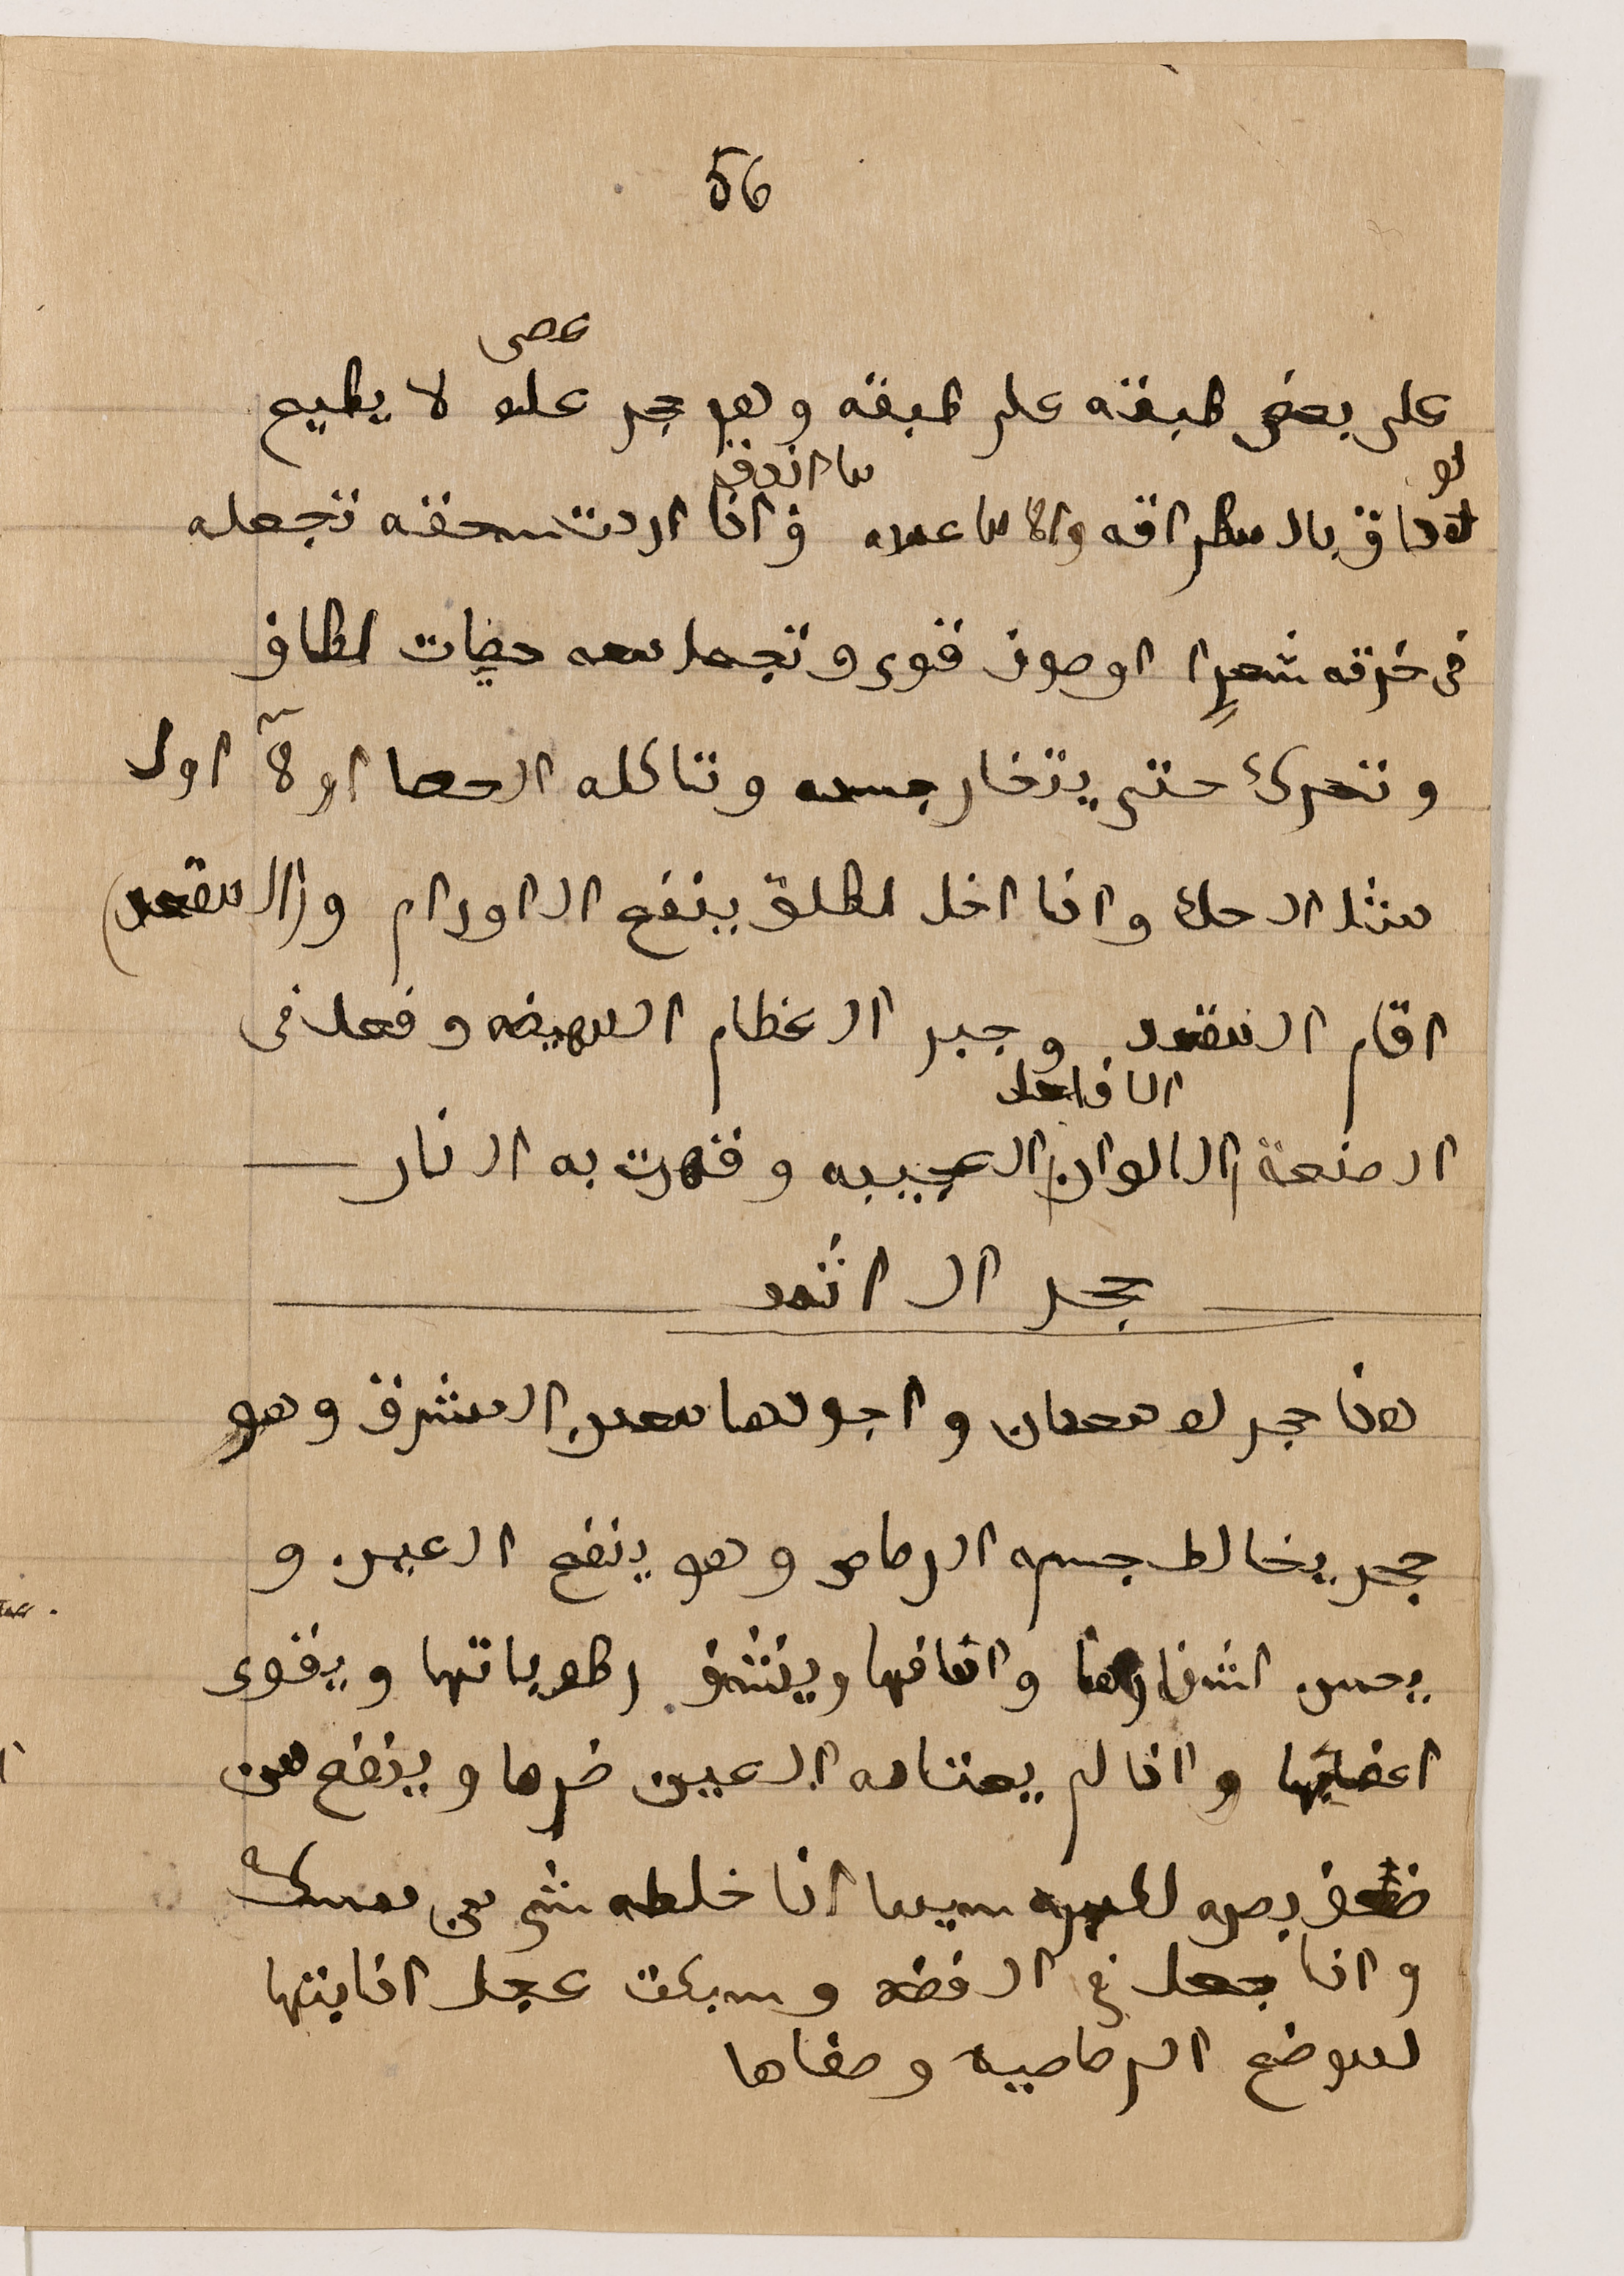 56
عصى
على بعض طبقه على طبقه وهو حجر علا لا يطيع
لو
ما اندق
دق بالمطراقه والا ما عملاه واذا اردت سحقه تجعله
فى خرقه شعرا او صوف قوى وتجعل معه حصات لطاف
وتحرك حتى يتخار جسده وتاكله الحصا اولا اول
مثل الحك واذا اخل لطلق ينفع الاورام والمقعد
اقام المقعد وجبر العظام المهيضه وفعل فى
الافاعل
الصنعة الالوان العجيبه وقهرت به النار
حجر الاثمد
هذا حجر له معدان واجودها معدن المشرق وهو
حجر يخالط جسمه الرصاص وهو ينفع العين و
يحسن اشفارها وافافها وينشف رطوباتها ويقوى
اعضايها واذا لم يعتاده العين ضرها وينفع من
ضعف بصره لكبره سيما اذا خلطه شى من مسك
واذا جعل فى الفضه وسبكت عجل اذابتها
لموضع الرصاصيه وصفاها